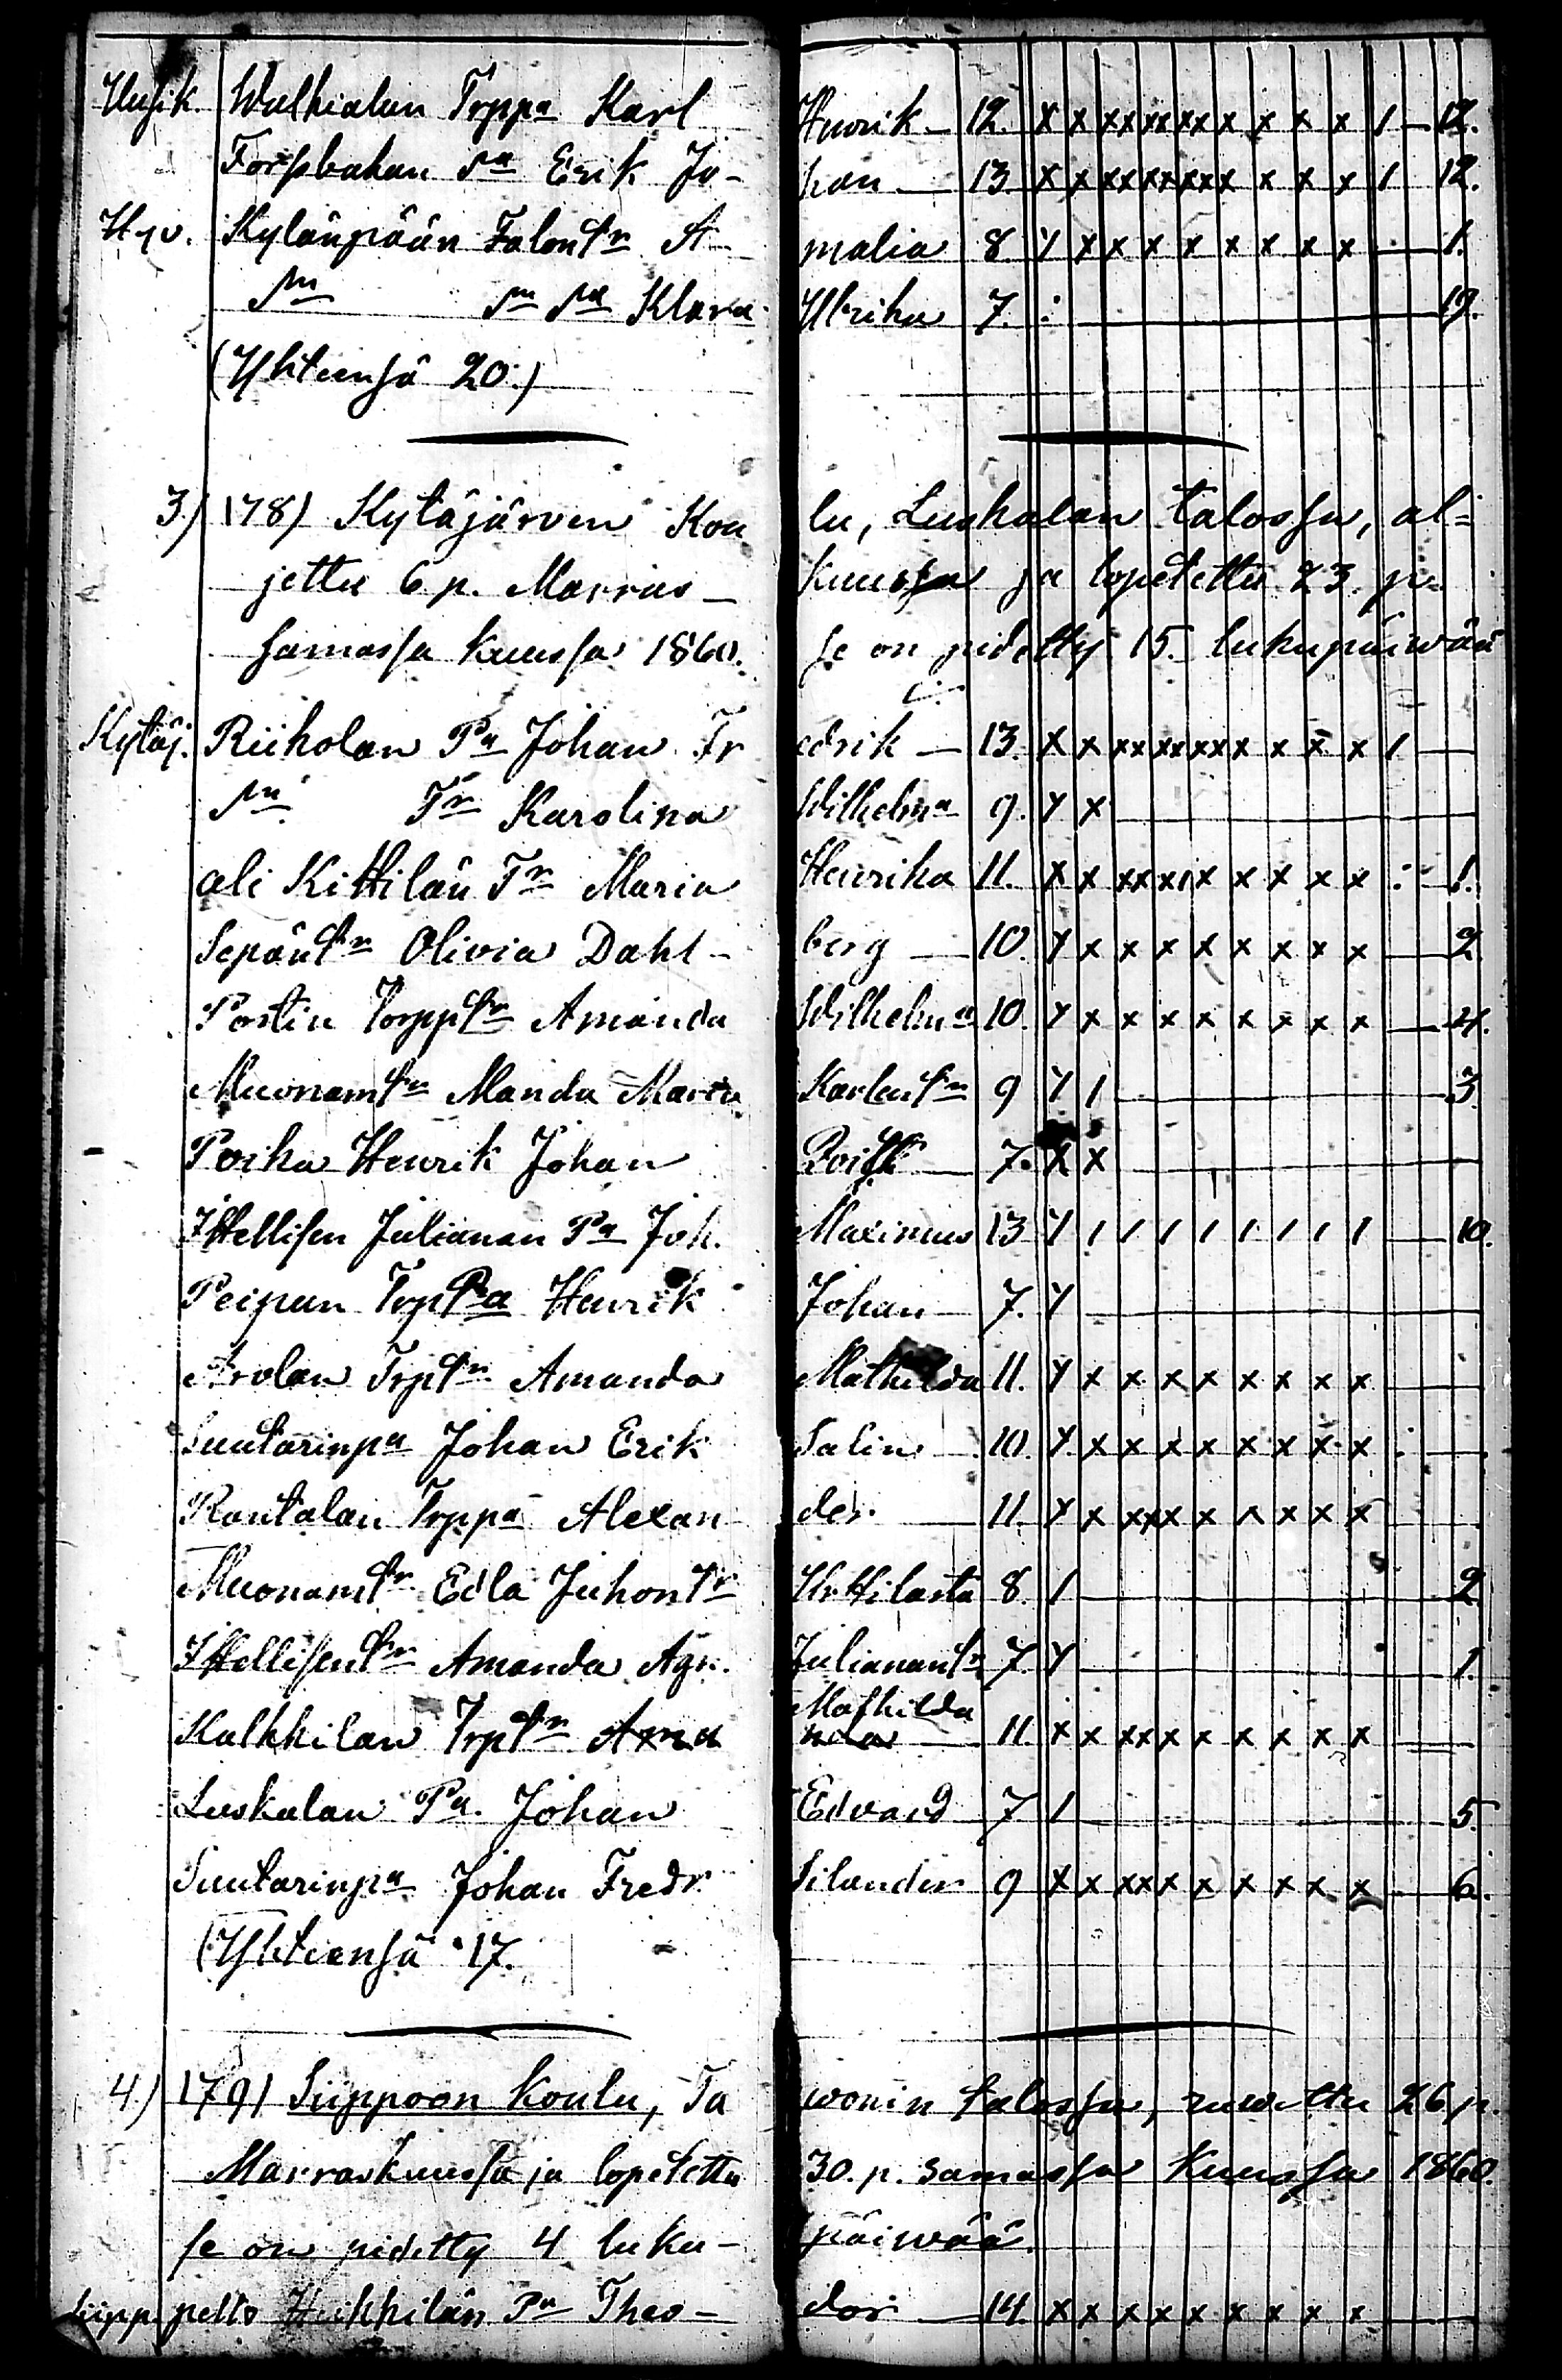 Uusik. Walkialan Trppa Karl Henrik — 12. x x xx xx xx x x x x 1 — 12.
Forssbakan Pa Erik Jo- han — 13 x x xx xx xx x x x x 1 12.
Hyv. Kylänpään Talontr A- malia 8 y x x x x x x x x — 1.
Klara Ulrika 7. : — 19.
(Yhteensä 20.)
3.) 178) Kytäjärven Kou lu, Luskalan talossa, al=
jettu 6 p. Marras- kuussa ja lopetettu 23. p.
samassa kuussa 1860. se on pidetty 15. lukupäiwää
Kytäj. Riiholan Pa Johan Fr edrik — 13. x x xx xx xx x x x x 1 —
Tr Karolina Wilhelma 9. y x —
ali Kittilän Tr Maria Henrika 11. x x xx x1 x x x x x : 1.
Sepäntr Olivia Dahl- berg — 10. y x x x x x x x x — 2
Postin Torpptr Amanda Wilhelma 10. y x x x x x x x x — 4.
Muonamtr Manda Maria Karlentr 9 y 1 — 3.
Poika Henrik Johan 7. x x —
Ittellisen Julianan Pa Joh. Maximus 13 y 1 1 1 1 1 1 1 1 — 10.
Peipun TrpPa Henrik Johan — 7. y —
Arolan Trptr Amanda Mathilda 11. y x x x x x x x x
Suutarinpa Johan Erik Salin — 10. y x x x x x x x x : —
Rantalan Trppa Alexan der. — 11. y x xxx x x x x x x
Muonamtr Edla Juhontr Kittilästä 8. 1 — 2
Ittellisentr Amanda Agr. Juliananr 7. y — 1.
Kalkkilan Trptr Ama nda Mathilda — 11. x x xx x x x x x x —
Luskalan Pa. Johan Edvard 7 1 — 5.
Suutarinpa Johan Fredr. Silander 9 x x xx x x x x x x — 6.
(Yhteensä 17.
4.) 179) Siippoon Koulu, Ta wonin talossa, ruwettu 26 p.
Marraskuussa ja lopetettu 30. p. samassa Kuussa 1860.
se on pidetty 4 luku- päiwää.
Siipp. pelto Heikkilän Pa Theo- dor — 14. x x x x x x x x x —